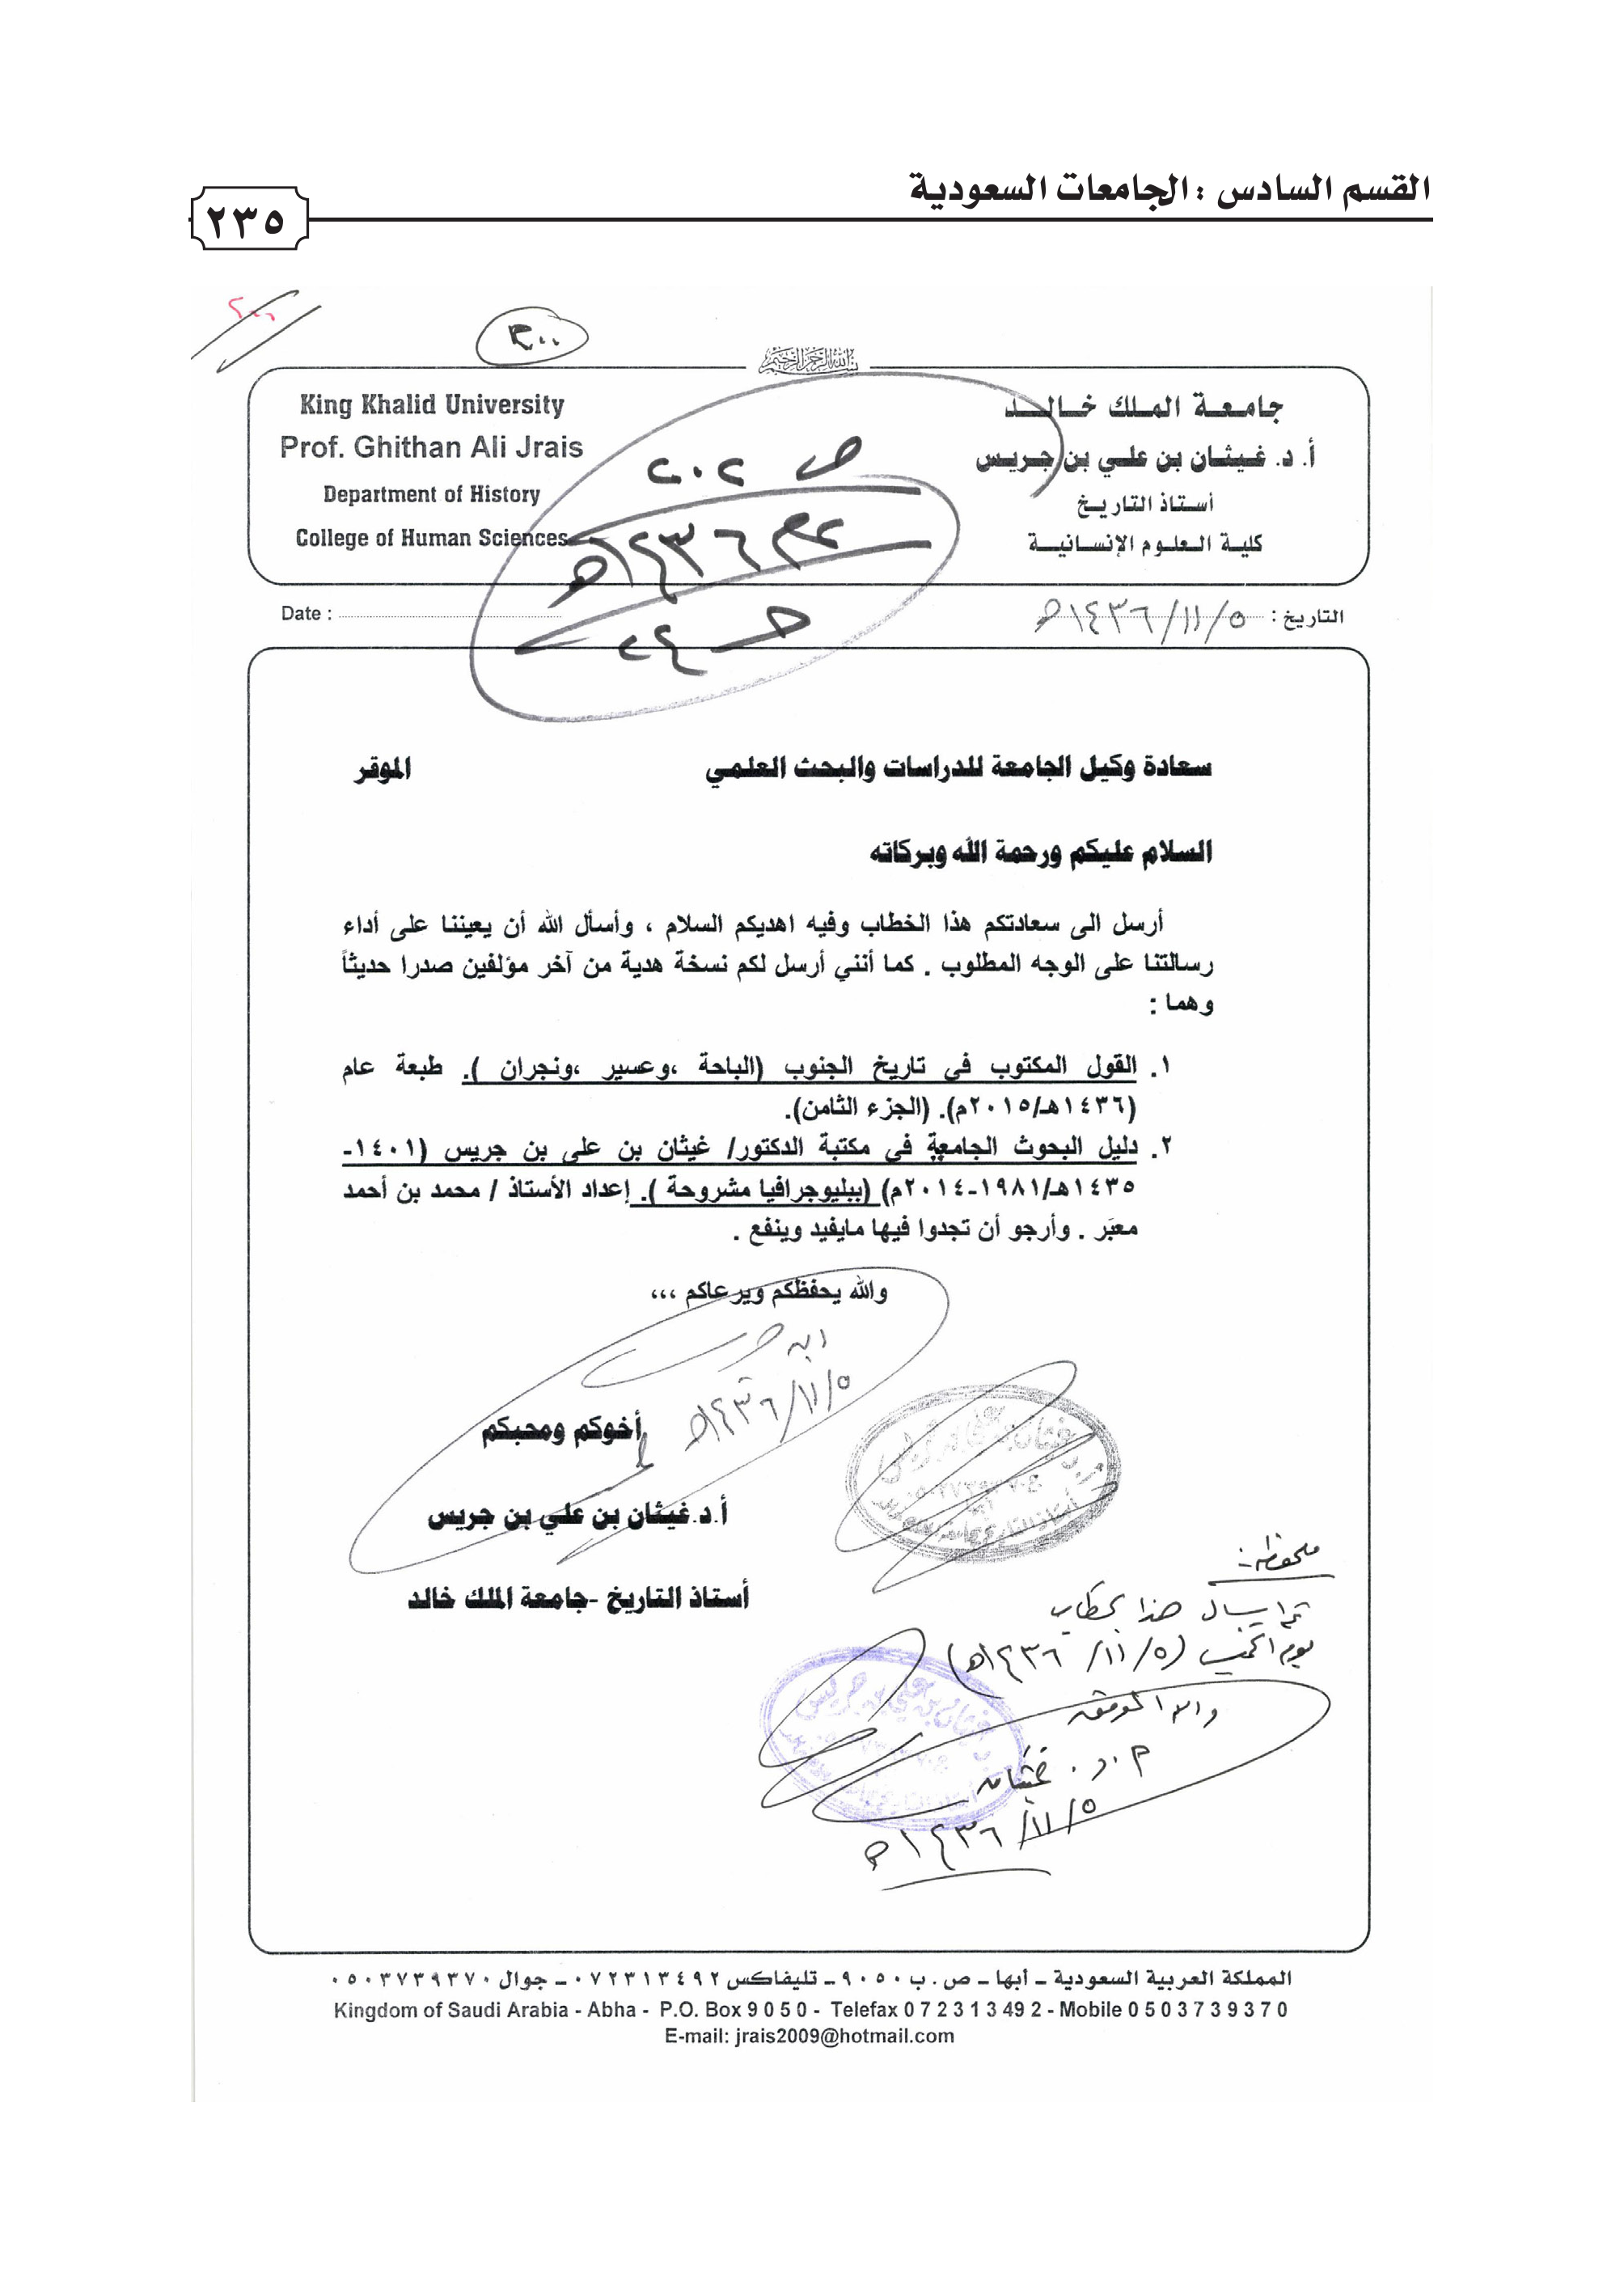 القسم السادس : الجامعات السعودية
٢٣٥
٢٠٠
٣٠٠
بسم الله الرحمن الرحيم
جامعة الملك خالد
أ. د. غيثان بن علي بن جريس
أستاذ التاريخ
كلية العلوم الإنسانية
King Khalid University
Prof. Ghithan Ali Jrais
Department of History
College of Human Sciences
ص ٢٠٢
١٤٣٦هـ
حـ ٢٤
التاريخ : ٥/١١/١٤٣٦هـ
Date :
سعادة وكيل الجامعة للدراسات والبحث العلمي الموقر
السلام عليكم ورحمة الله وبركاته
أرسل الى سعادتكم هذا الخطاب وفيه اهديكم السلام ، وأسأل الله أن يعيننا على أداء
رسالتنا على الوجه المطلوب . كما أنني أرسل لكم نسخة هدية من آخر مؤلفين صدرا حديثاً
وهما :
١. القول المكتوب في تاريخ الجنوب (الباحة ،وعسير ،ونجران ). طبعة عام
(١٤٣٦هـ/٢٠١٥م). (الجزء الثامن).
٢. دليل البحوث الجامعية في مكتبة الدكتور/ غيثان بن علي بن جريس (١٤٠١-
١٤٣٥هـ/١٩٨١-٢٠١٤م) (ببليوجرافيا مشروحة ). إعداد الأستاذ / محمد بن أحمد
معبَر . وأرجو أن تجدوا فيها مايفيد وينفع .
والله يحفظكم ويرعاكم ،،،
ابن جريس
٥/١١/١٤٣٦هـ
أخوكم ومحبكم
أ.د.غيثان بن علي بن جريس
أستاذ التاريخ -جامعة الملك خالد
ملحوظة:
تم ارسال هذا الخطاب
يوم الخميس (٥/١١/١٤٣٦هـ)
والله الموفق
أ.د. غيثان
٥/١١/١٤٣٦هـ
المملكة العربية السعودية ـ أبها ـ ص . ب ٩٠٥٠ ـ تليفاكس ٠٧٢٣١٣٤٩٢ ـ جوال ٠٥٠٣٧٣٩٣٧٠
Kingdom of Saudi Arabia - Abha - P.O. Box 9 0 5 0 - Telefax 0 7 2 3 1 3 49 2 - Mobile 0 5 0 3 7 3 9 3 7 0
E-mail: jrais2009@hotmail.com